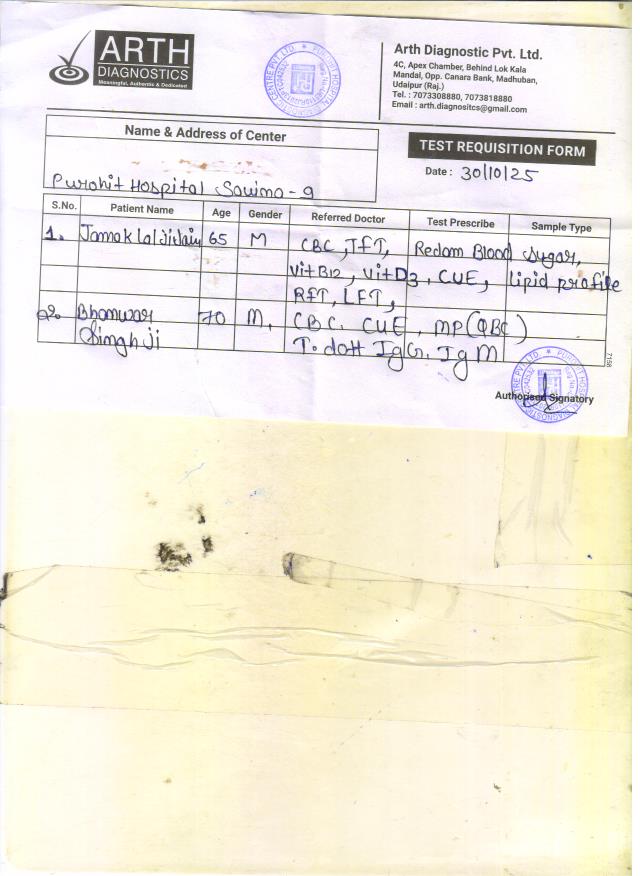 ARTH
DIAGNOSTICS
Meaningful, Authentic & Dedicated
Arth Diagnostic Pvt. Ltd.
4C, Apex Chamber, Behind Lok Kala
Mandal, Opp. Canara Bank, Madhuban,
Udaipur (Raj.)
Tel. : 7073308880, 7073818880
Email : arth.diagnositcs@gmail.com
Name & Address of Center
TEST REQUISITION FORM
Date : 30/10/25
Purohit Hospital Savina - 9
S.No. Patient Name Age Gender Referred Doctor Test Prescribe Sample Type
1. Jamak lal Ji Jain 65 M CBC, TFT, Redom Blood sygar,
Vit B12, Vit D3, CUE, lipid profile
RFT, LFT,
2. Bhanwar 70 M, CBC, CUE, MP(QBC)
Singh Ji T. dott IgG, IgM
7158
Authorised Signatory